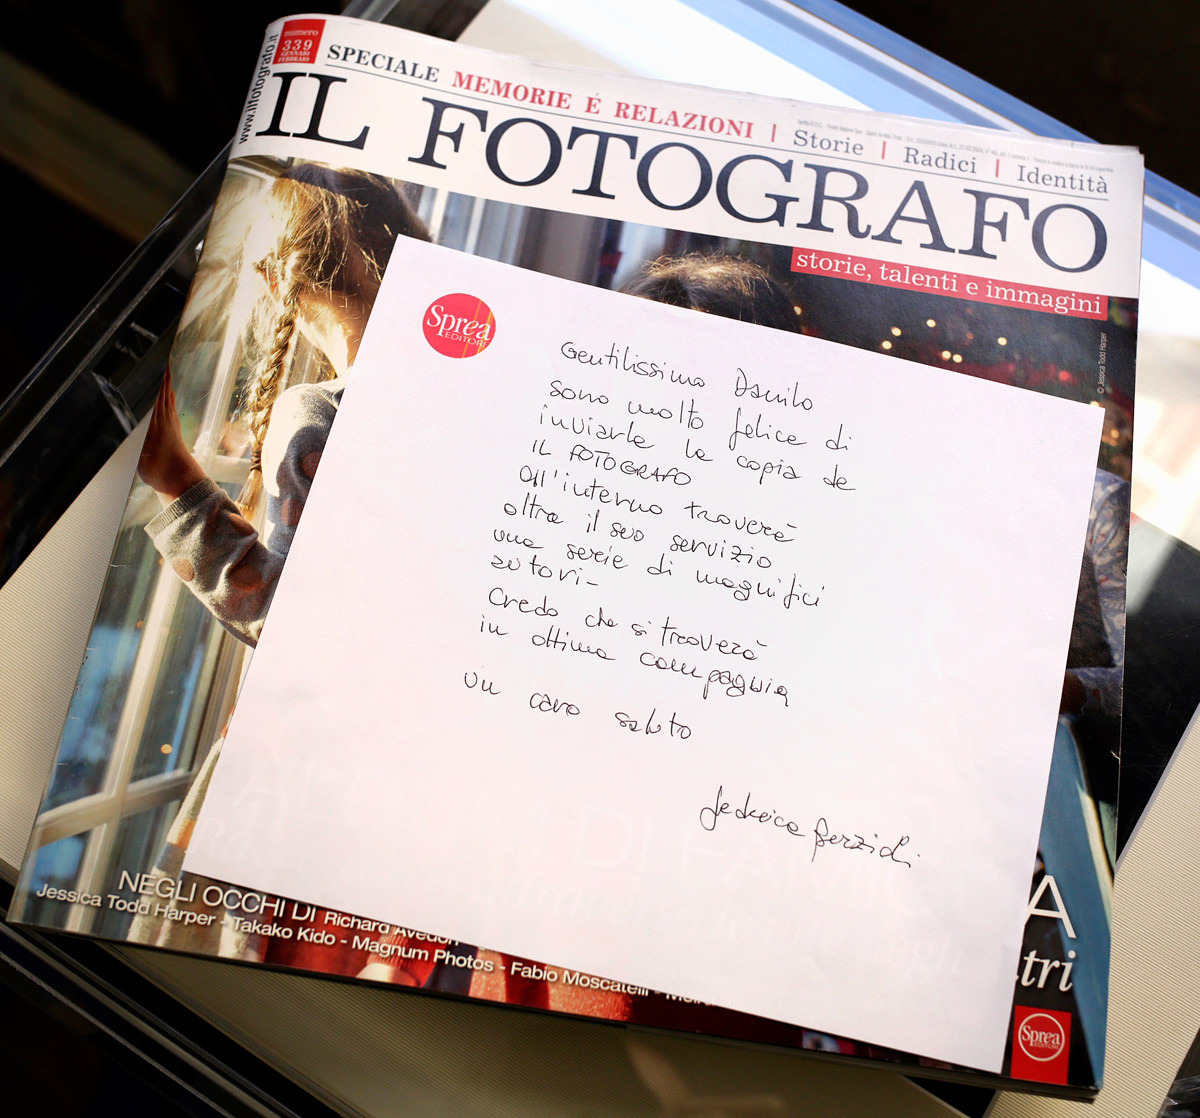 www.ilfotografo.it
numero
339
GENNAIO
FEBBRAIO
SPECIALE MEMORIE E RELAZIONI | Storie | Radici | Identità
IL FOTOGRAFO
storie, talenti e immagini
© Jessica Todd Harper
Sprea
EDITORI
Gentilissimo Danilo
sono molto felice di
inviarle la copia de
IL FOTOGRAFO
All'interno troverà
oltre il suo servizio
una serie di magnifici
autori-
Credo che si troverà
in ottima compagnia
Un caro saluto
Federica Berzioli
NEGLI OCCHI DI Richard Avedon
Jessica Todd Harper - Takako Kido - Magnum Photos - Fabio Moscatelli -
A
tri
Sprea
EDITORI